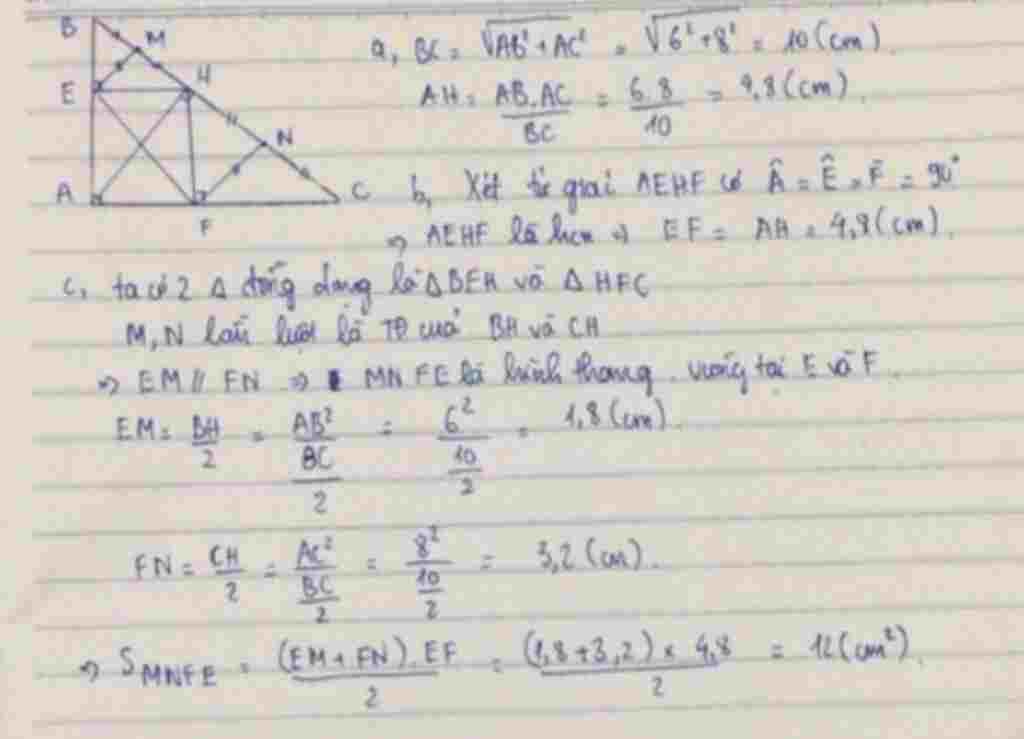 B
M
E
H
N
A
C
F
a, BC = √AB²+AC² = √6²+8² = 10 (cm).
AH = AB.AC/BC = 6.8/10 = 4,8 (cm).
b, Xét tứ giác AEHF có Â = Ê = F̂ = 90°
⇒ AEHF là hcn ⇒ EF = AH = 4,8 (cm).
c, ta có 2 Δ đồng dạng là ΔBEH và Δ HFC
M, N lần lượt là TĐ của BH và CH
⇒ EM // FN ⇒ MNFE là hình thang vuông tại E và F.
EM = BH/2 = AB²/BC/2 = 6²/10/2 = 1,8 (cm).
FN = CH/2 = AC²/BC/2 = 8²/10/2 = 3,2 (cm).
⇒ S MNFE = (EM + FN).EF/2 = (1,8+3,2) × 4,8/2 = 12 (cm²).